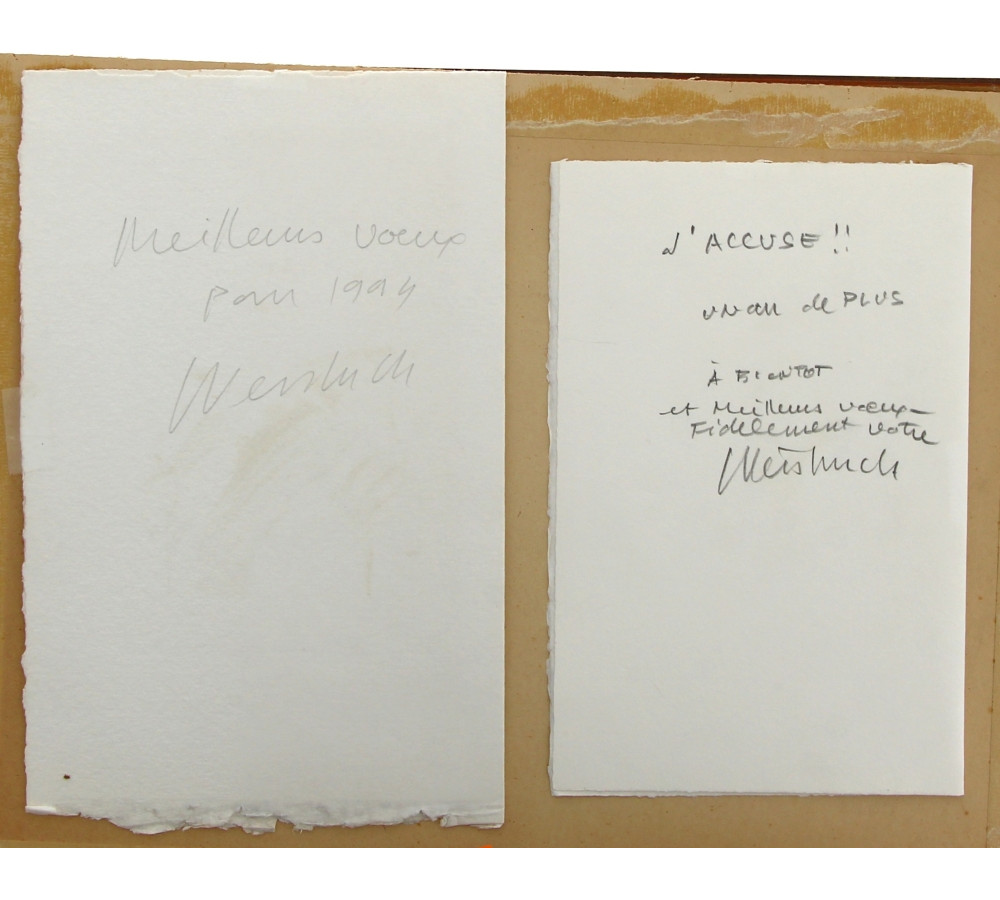 Meilleurs voeux
pour 1994
Weisbuch
J'ACCUSE!!
un an de PLUS
À BIENTOT
et Meilleurs voeux–
Fidèlement votre
Weisbuch